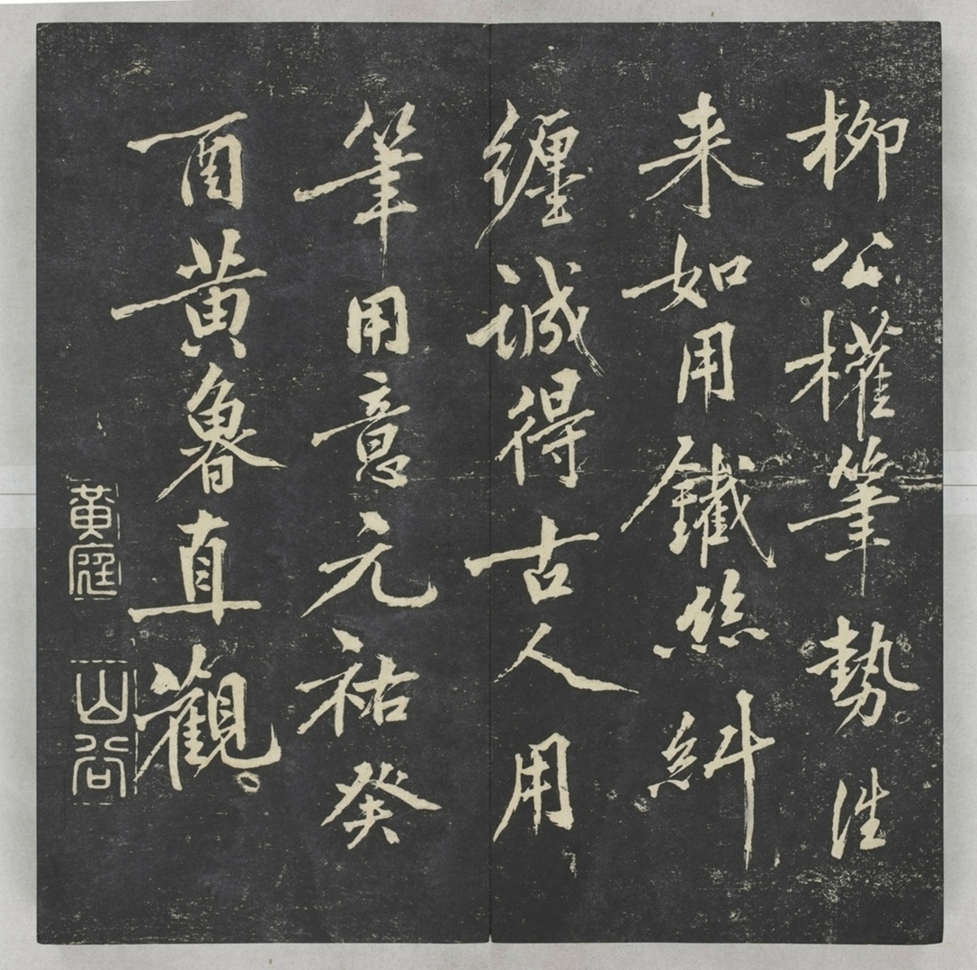 柳公權筆勢往
来如用鐵絲糾
纏誠得古人用
筆用意元祐癸
酉黃魯直觀
黃庭
山谷